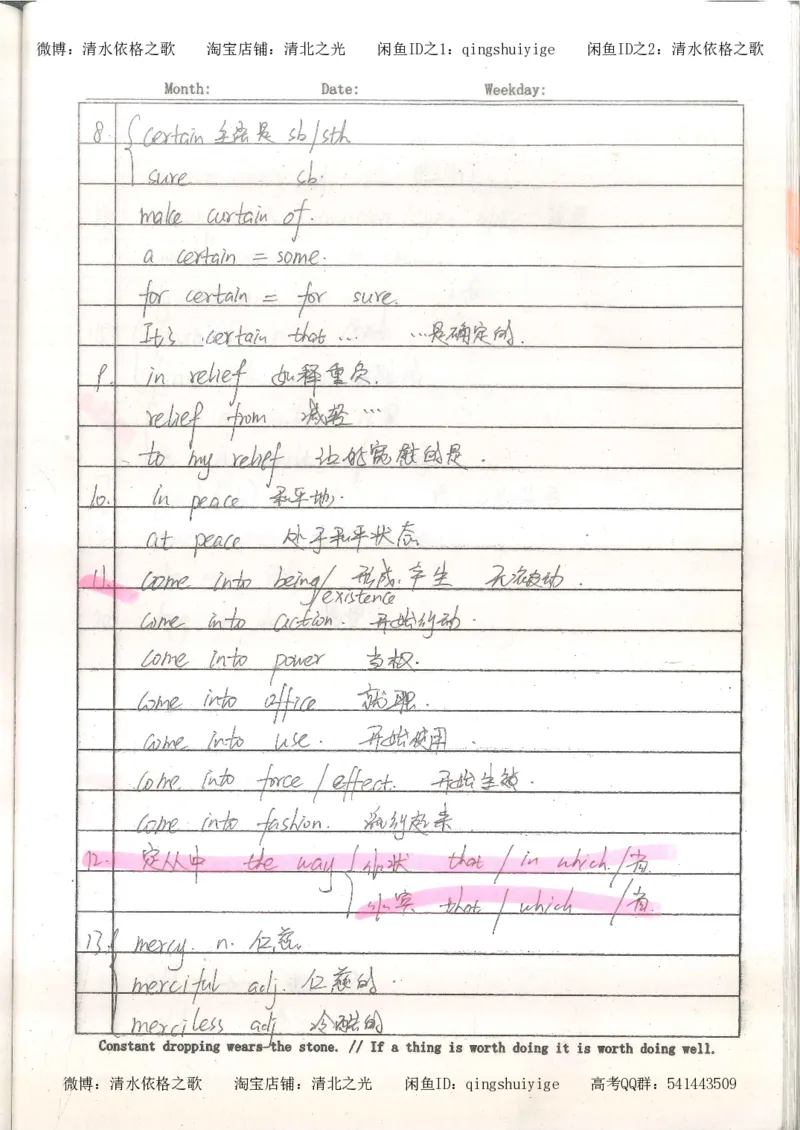 微博：清水依格之歌 淘宝店铺：清北之光 闲鱼ID之1：qingshuiyige 闲鱼ID之2：清水依格之歌
Month: Date: Weekday:
8. { certain 主语是 sb/sth
sure sb.
make curtain of.
a certain = some.
for certain = for sure.
It's certain that … …是确定的.
9. in relief 如释重负.
relief from 减轻…
to my relief 让的宽慰的是.
10. in peace 和平地.
at peace 处于和平状态
11. come into being/ 形成.产生 无被动.
existence
come into action. 开始行动.
come into power 当权.
come into office 就职.
come into use. 开始使用.
come into force / effect. 开始生效.
come into fashion. 流行起来
12. 定从中 the way { 作状 that / in which / 省.
作宾 that / which / 省.
13. { mercy. n. 仁慈.
merciful adj. 仁慈的.
merciless adj 冷酷的
Constant dropping wears the stone. // If a thing is worth doing it is worth doing well.
微博：清水依格之歌 淘宝店铺：清北之光 闲鱼ID：qingshuiyige 高考QQ群：541443509